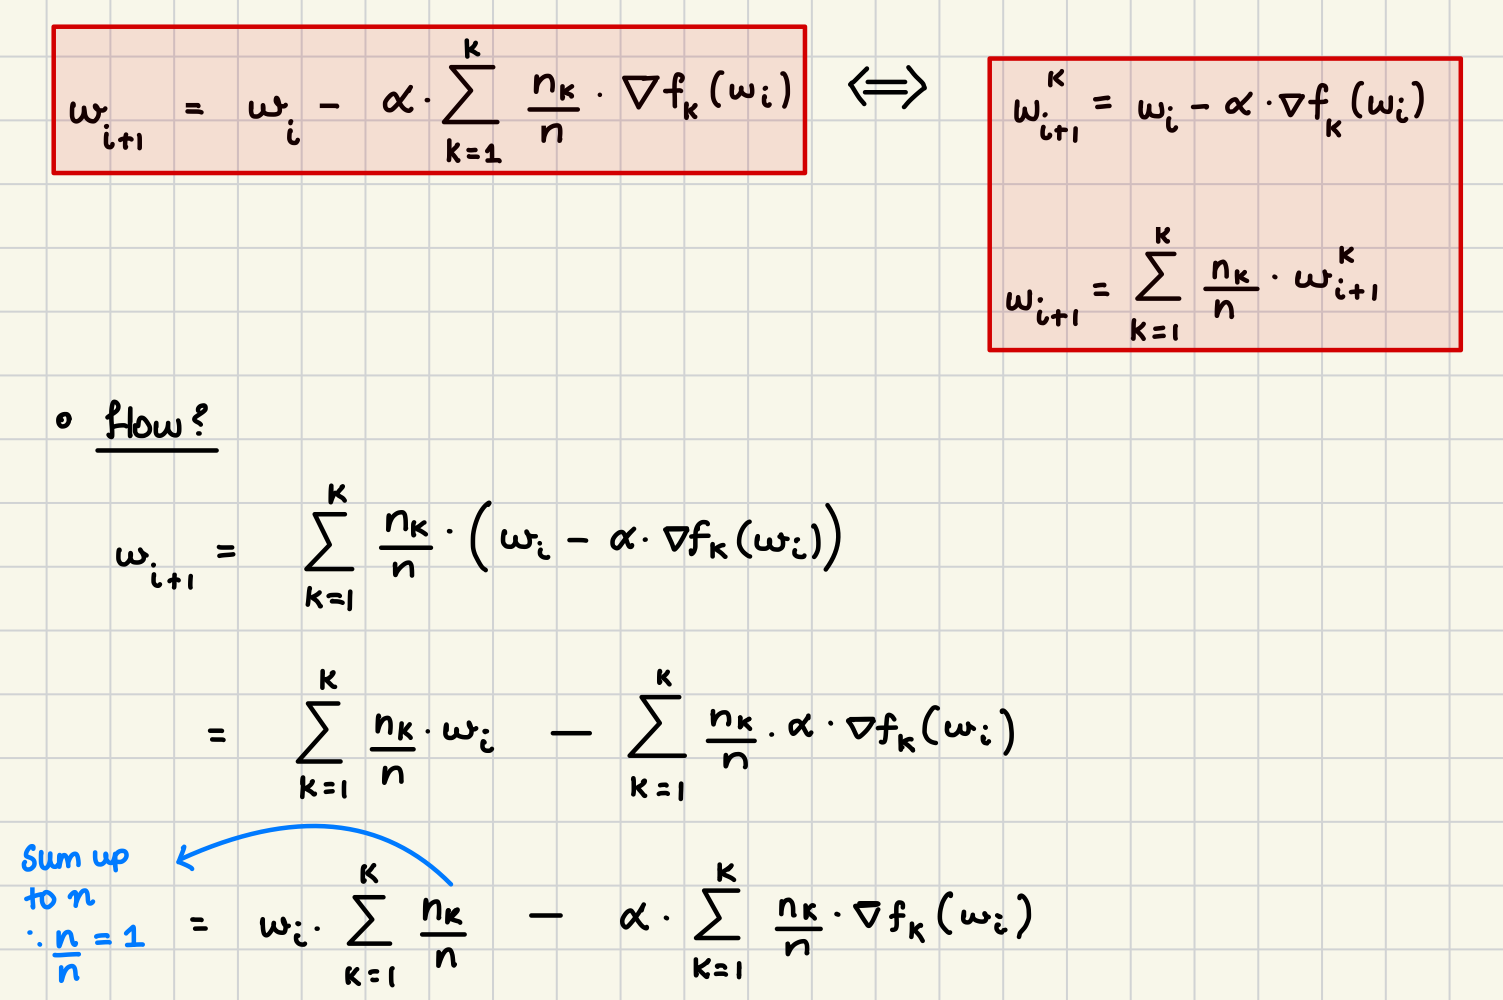 w_{i+1} = w_i - α · \sum_{k=1}^{K} \frac{n_k}{n} · ∇f_k(w_i) ⟺ w_{i+1}^k = w_i - α · ∇f_k(w_i)
w_{i+1} = \sum_{k=1}^{K} \frac{n_k}{n} · w_{i+1}^k
• How?
w_{i+1} = \sum_{k=1}^{K} \frac{n_k}{n} · (w_i - α · ∇f_k(w_i))
= \sum_{k=1}^{K} \frac{n_k}{n} · w_i - \sum_{k=1}^{K} \frac{n_k}{n} · α · ∇f_k(w_i)
Sum up
to n
∴ \frac{n}{n} = 1
= w_i · \sum_{k=1}^{K} \frac{n_k}{n} - α · \sum_{k=1}^{K} \frac{n_k}{n} · ∇f_k(w_i)